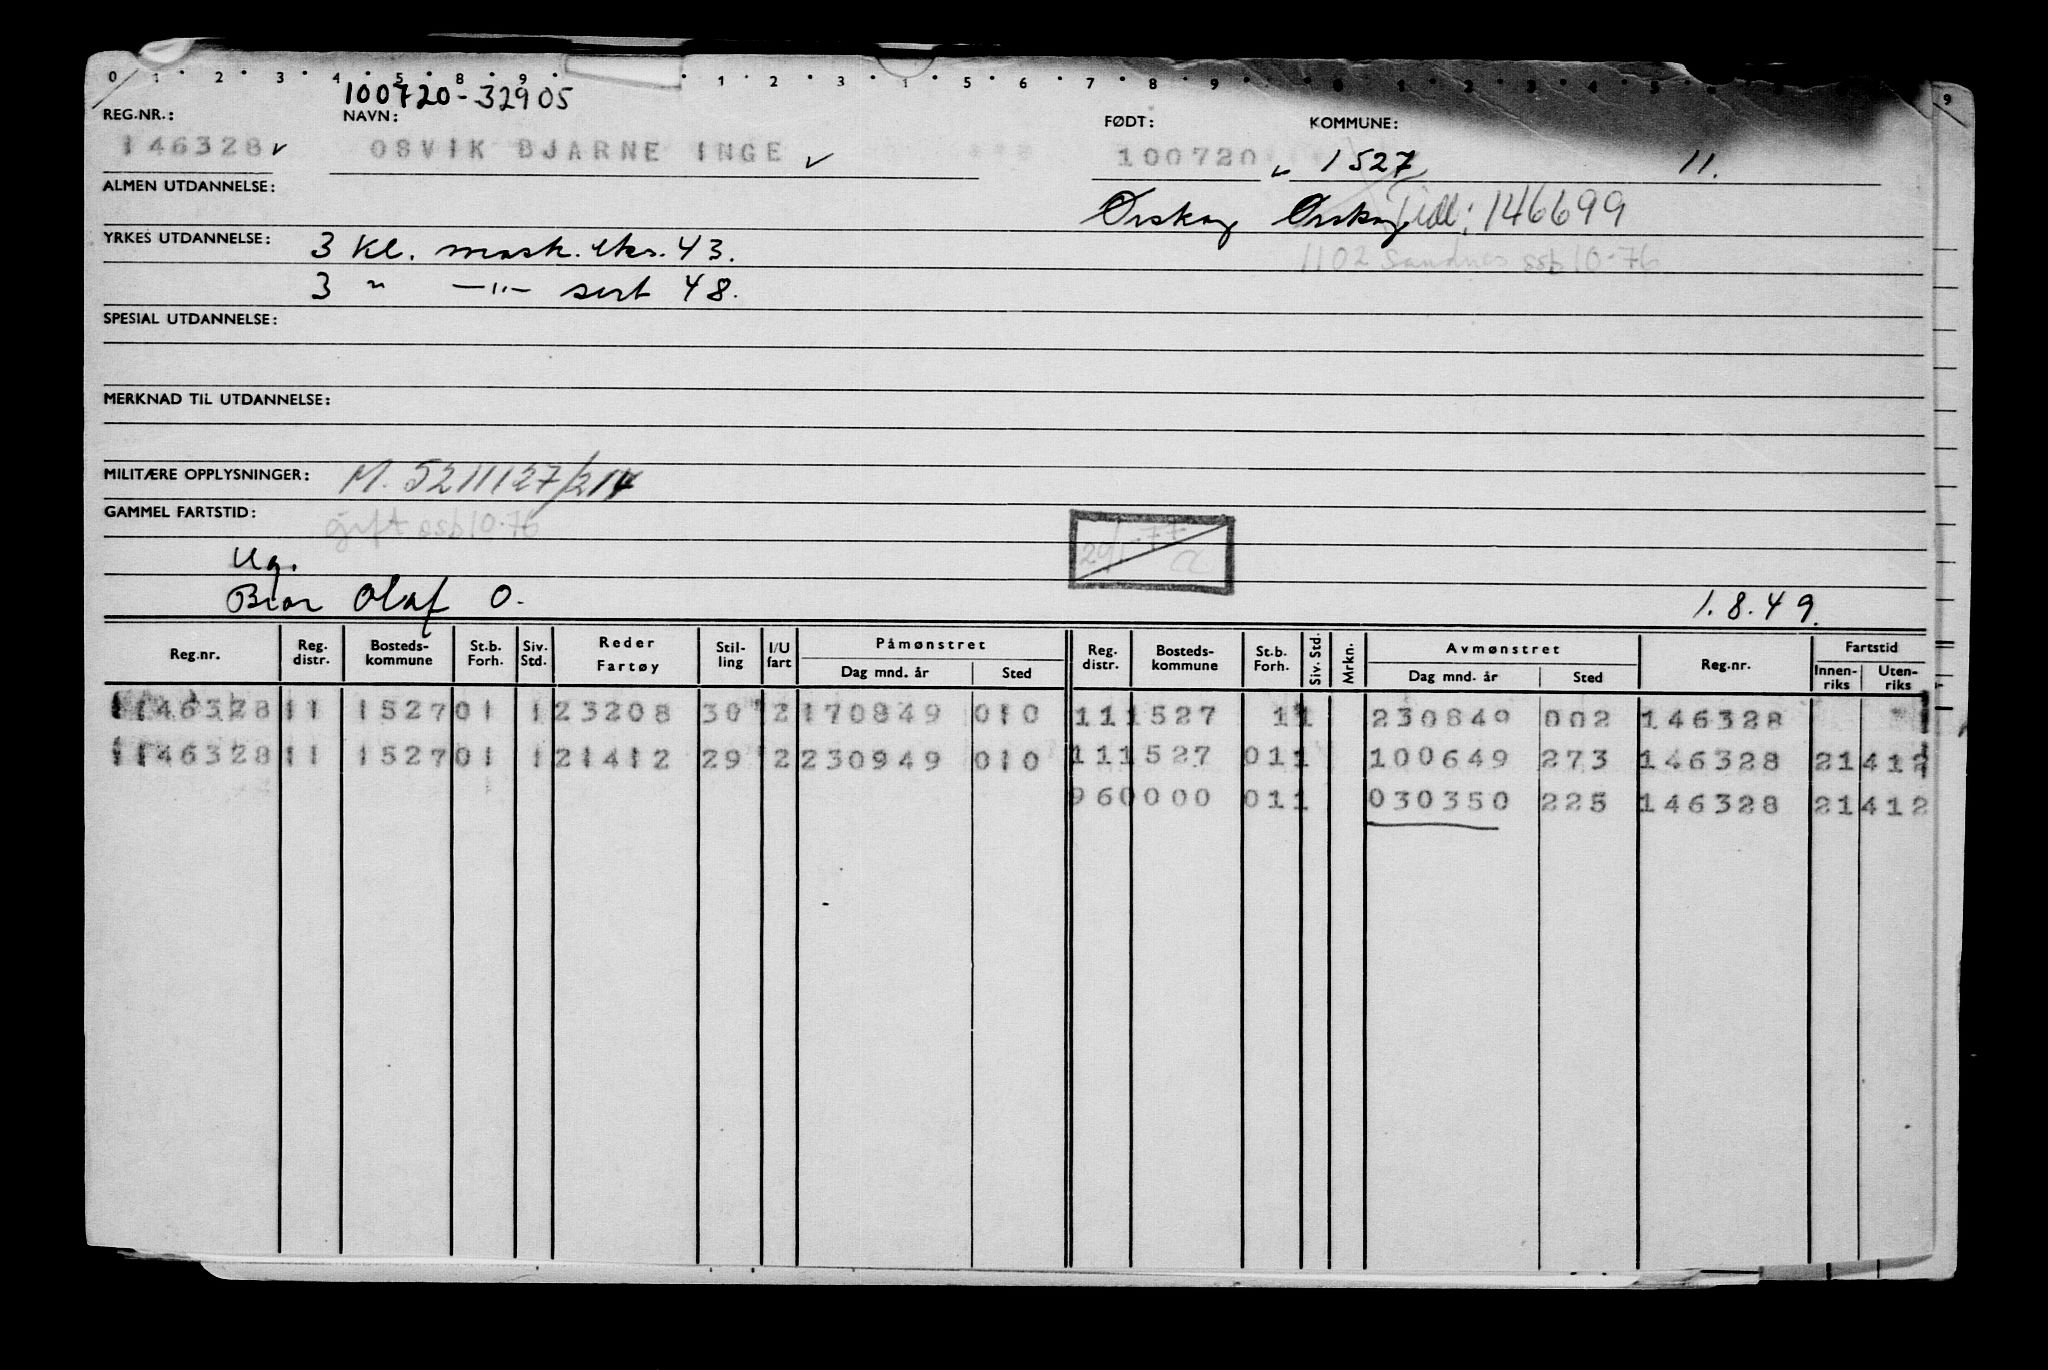 0 1 2 3 4 5 8 9 1 2 3 1 5 6 7 8 9 0 1 2 3 4 5 9
100720-32905
REG.NR.: NAVN: FØDT: KOMMUNE:
146328 ✓ OSVIK BJARNE INGE ✓ 100720 ✓ 1527 11.
ALMEN UTDANNELSE:
Ørskog Ørskog Tidl: 146699
YRKES UTDANNELSE: 3 Kl. mask. eks. 43.
1102 Sandnes ssb 10-76
3 " —"— sert 48.
SPESIAL UTDANNELSE:
MERKNAD TIL UTDANNELSE:
MILITÆRE OPPLYSNINGER: M. 5211127/214
GAMMEL FARTSTID:
gift ssb 10-76
29/1-77
Ug.
Bror Olaf O. 1.8.49.
Reg.nr. Reg. distr. Bosteds-kommune St.b. Forh. Siv. Std. Reder Fartøy Stil-ling I/U fart Påmønstret Dag mnd. år Sted Reg. distr. Bosteds-kommune St.b. Forh. Siv. Std. Mrkn. Avmønstret Dag mnd. år Sted Reg.nr. Fartstid Innen-riks Uten-riks
1146328 11 1527 01 1 23208 30 2 170849 010 11 1527 11 230849 002 146328
1146328 11 1527 01 1 21412 29 2 230949 010 11 1527 011 100649 273 146328 21412
960000 011 030350 225 146328 21412